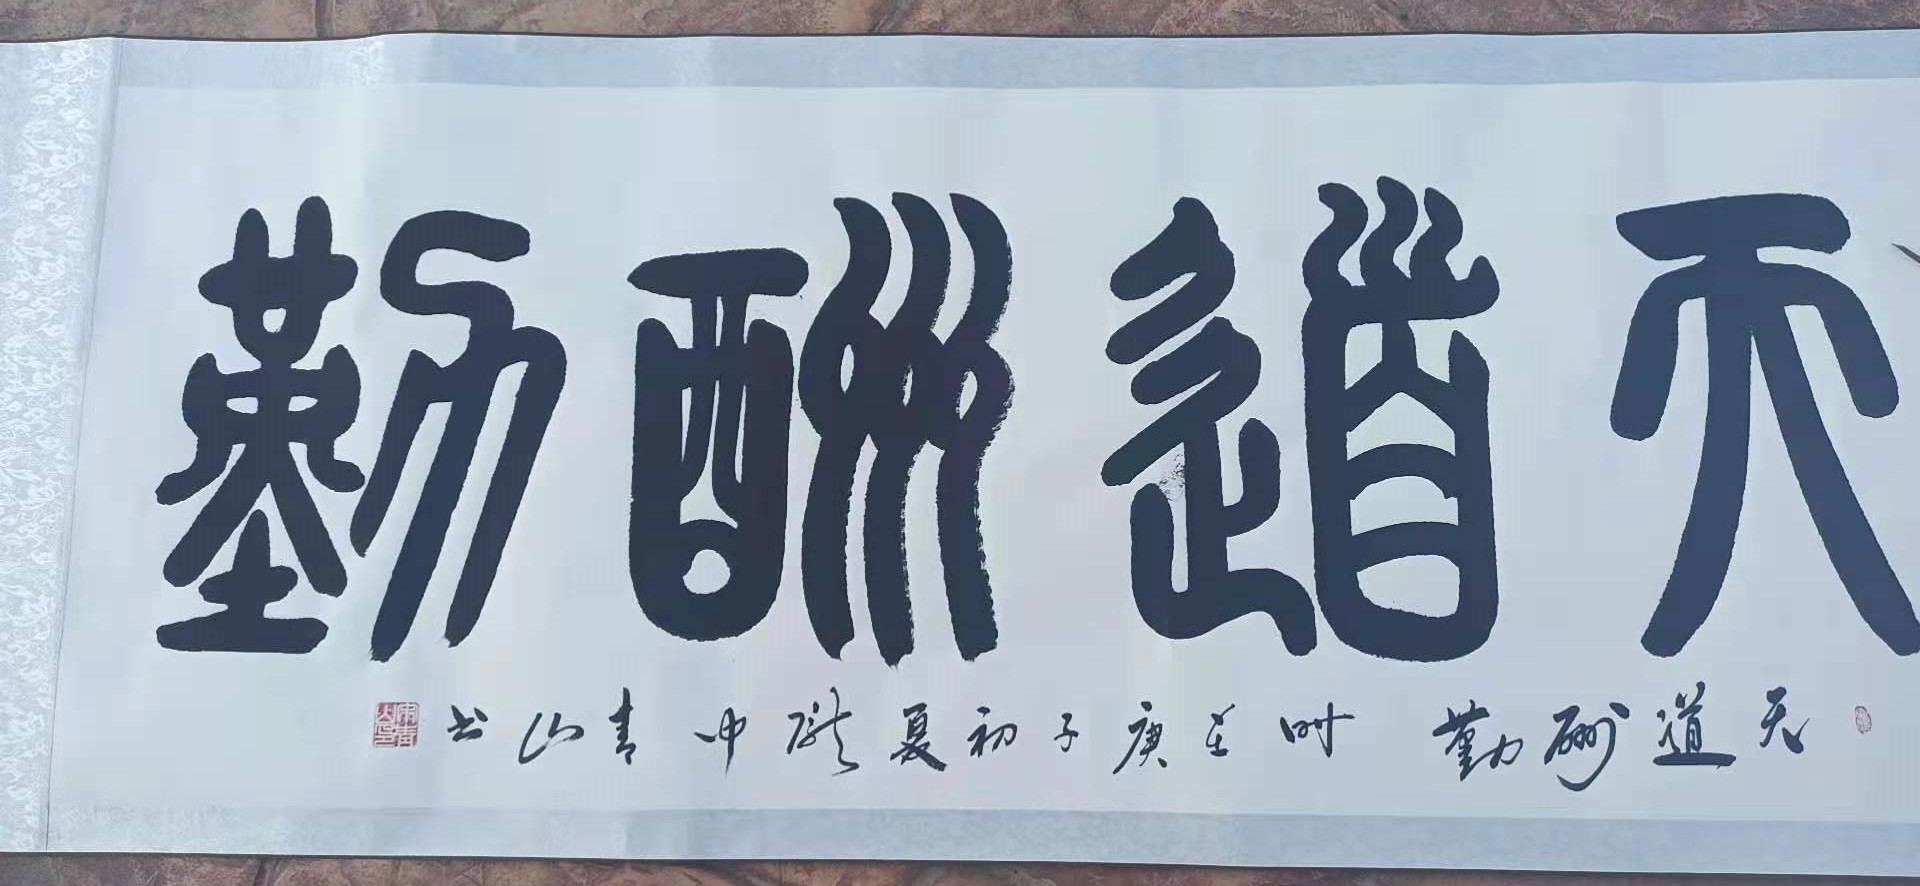 天道酬勤
天道酬勤 时在庚子初夏陇中青山书